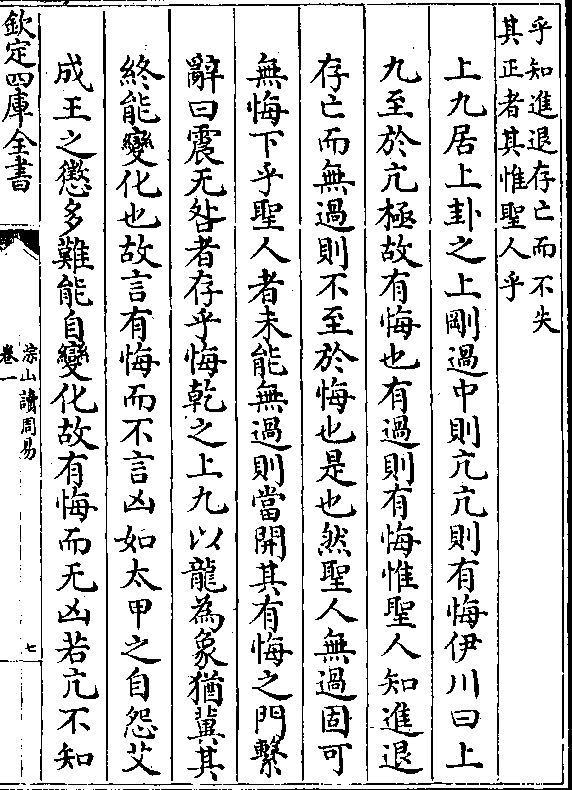 乎知進退存亡而不失
其正者其惟聖人乎
上九居上卦之上剛過中則亢亢則有悔伊川曰上
九至於亢極故有悔也有過則有悔惟聖人知進退
存亡而無過則不至於悔也是也然聖人無過固可
無悔下乎聖人者未能無過則當開其有悔之門繫
辭曰震无咎者存乎悔乾之上九以龍為象猶冀其
終能變化也故言有悔而不言凶如太甲之自怨艾
成王之懲多難能自變化故有悔而无凶若亢不知
欽定四庫全書
淙山讀周易
卷一
七